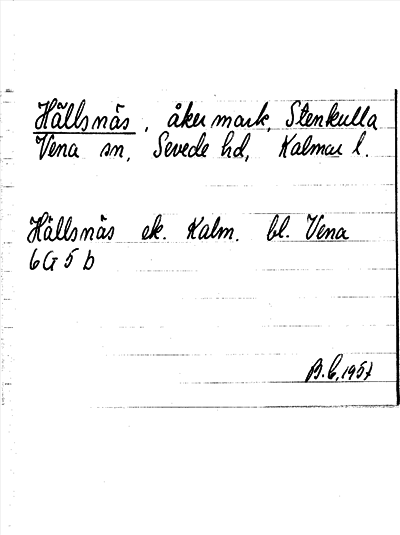 Hällsnäs, åkermark, Stenkulla
Vena sn, Sevede hd, Kalmar l.
Hällsnäs ek. Kalm. bl. Vena
6 G 5 b
1957